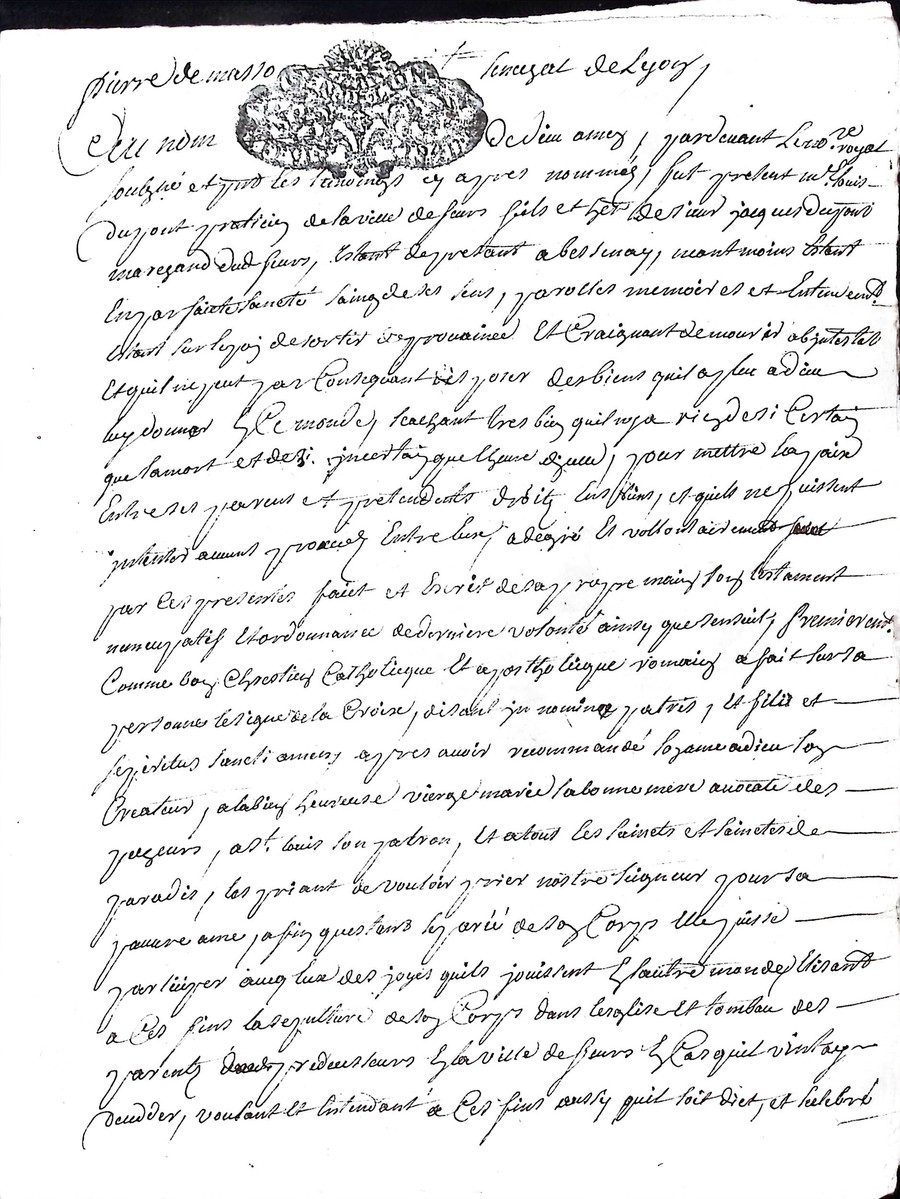 pierre de masso senegal de Lyon,
Au nom de dieu amen, pardevant le nore royal
soubzné et pnt les tesmoings cy apres nommés, fut present mr. louis
dupont praticien de la ville de feurs fils et her de sieur jacques dupont
marchand dud feurs, Estant de present a bessenay, neantmoins Estant
En parfaicte santé sain de ses sens, parolles memoires et Entendemt
Estant sur le poin de sortir de province Et Craignant de mourir abintestat
Et quil ne peut par Consequant disposer des biens quil a pleu a dieu
luy donner En Ce monde, scachant tres bien quil ny a rien de si Certain
que la mort et de si incertain que lheure dicelle, pour mettre la paix
Entre ses parens et pretendents droitz En ses biens, et quils ne puissent
intenter aucuns proces Entre Eux, a de gré Et vollontairement
par Ces presentes faict et Escrit de sa propre main son testament
nuncupatif Et ordonnance de derniere volonté ainsy que sensuit, premieremt.
Comme bon Chrestien Catholicque Et apostholicque romain a fait sur sa
personne le signe de la Croix, disant in nomine patris, Et filii et
spiritus sancti amen apres avoir recommandé son ame a dieu son
Createur, a la bien heureuse vierge marie sa bonne mere avocate des
pecheurs, a st. louis son patron, Et a tout les saincts et sainctes de
paradis, les priant de vouloir prier nostre seigneur pour sa
pauvre ame, afin questant separée de son Corps Elle puisse
participer avec Eux des joyes quils jouissent En lautre monde, Elisant
a Ces fins la sepulture de son Corps dans leglise Et tombau des
parents predecesseurs En la ville de feurs En Cas quil vint a
decedder, voulant Et Entendant a Ces fins aussy quil soit dict, et celebré